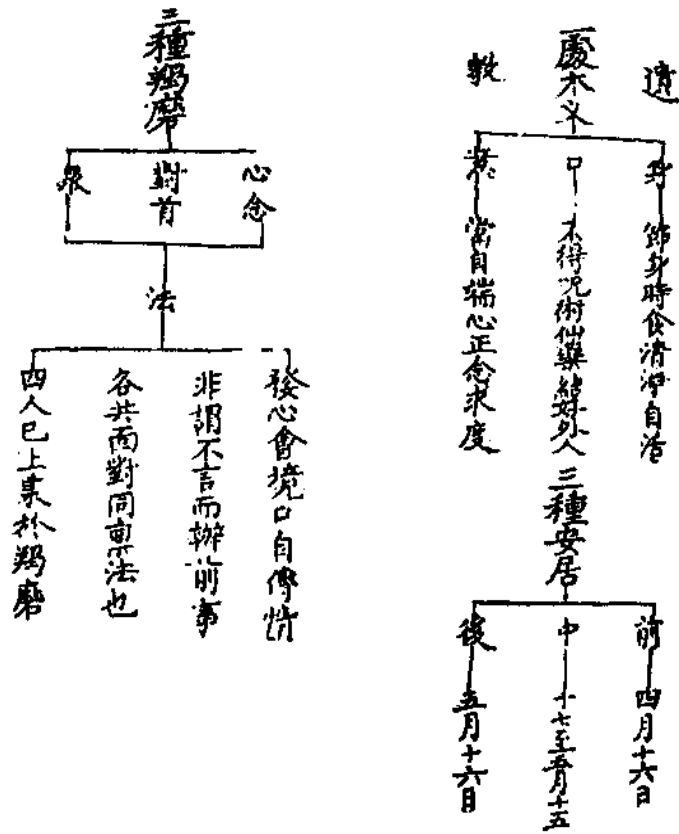 遺
處木叉
教
身
節身時食清淨自活
口
不得呪術仙藥結好外人
意
當自端心正念求度
三種安居
前
四月十六日
中
十七至五月十五
後
五月十六日
三種羯磨
心念
對首
眾
法
發心會境口自傳情
非謂不言而辦前事
各共面對同秉法也
四人已上秉於羯磨